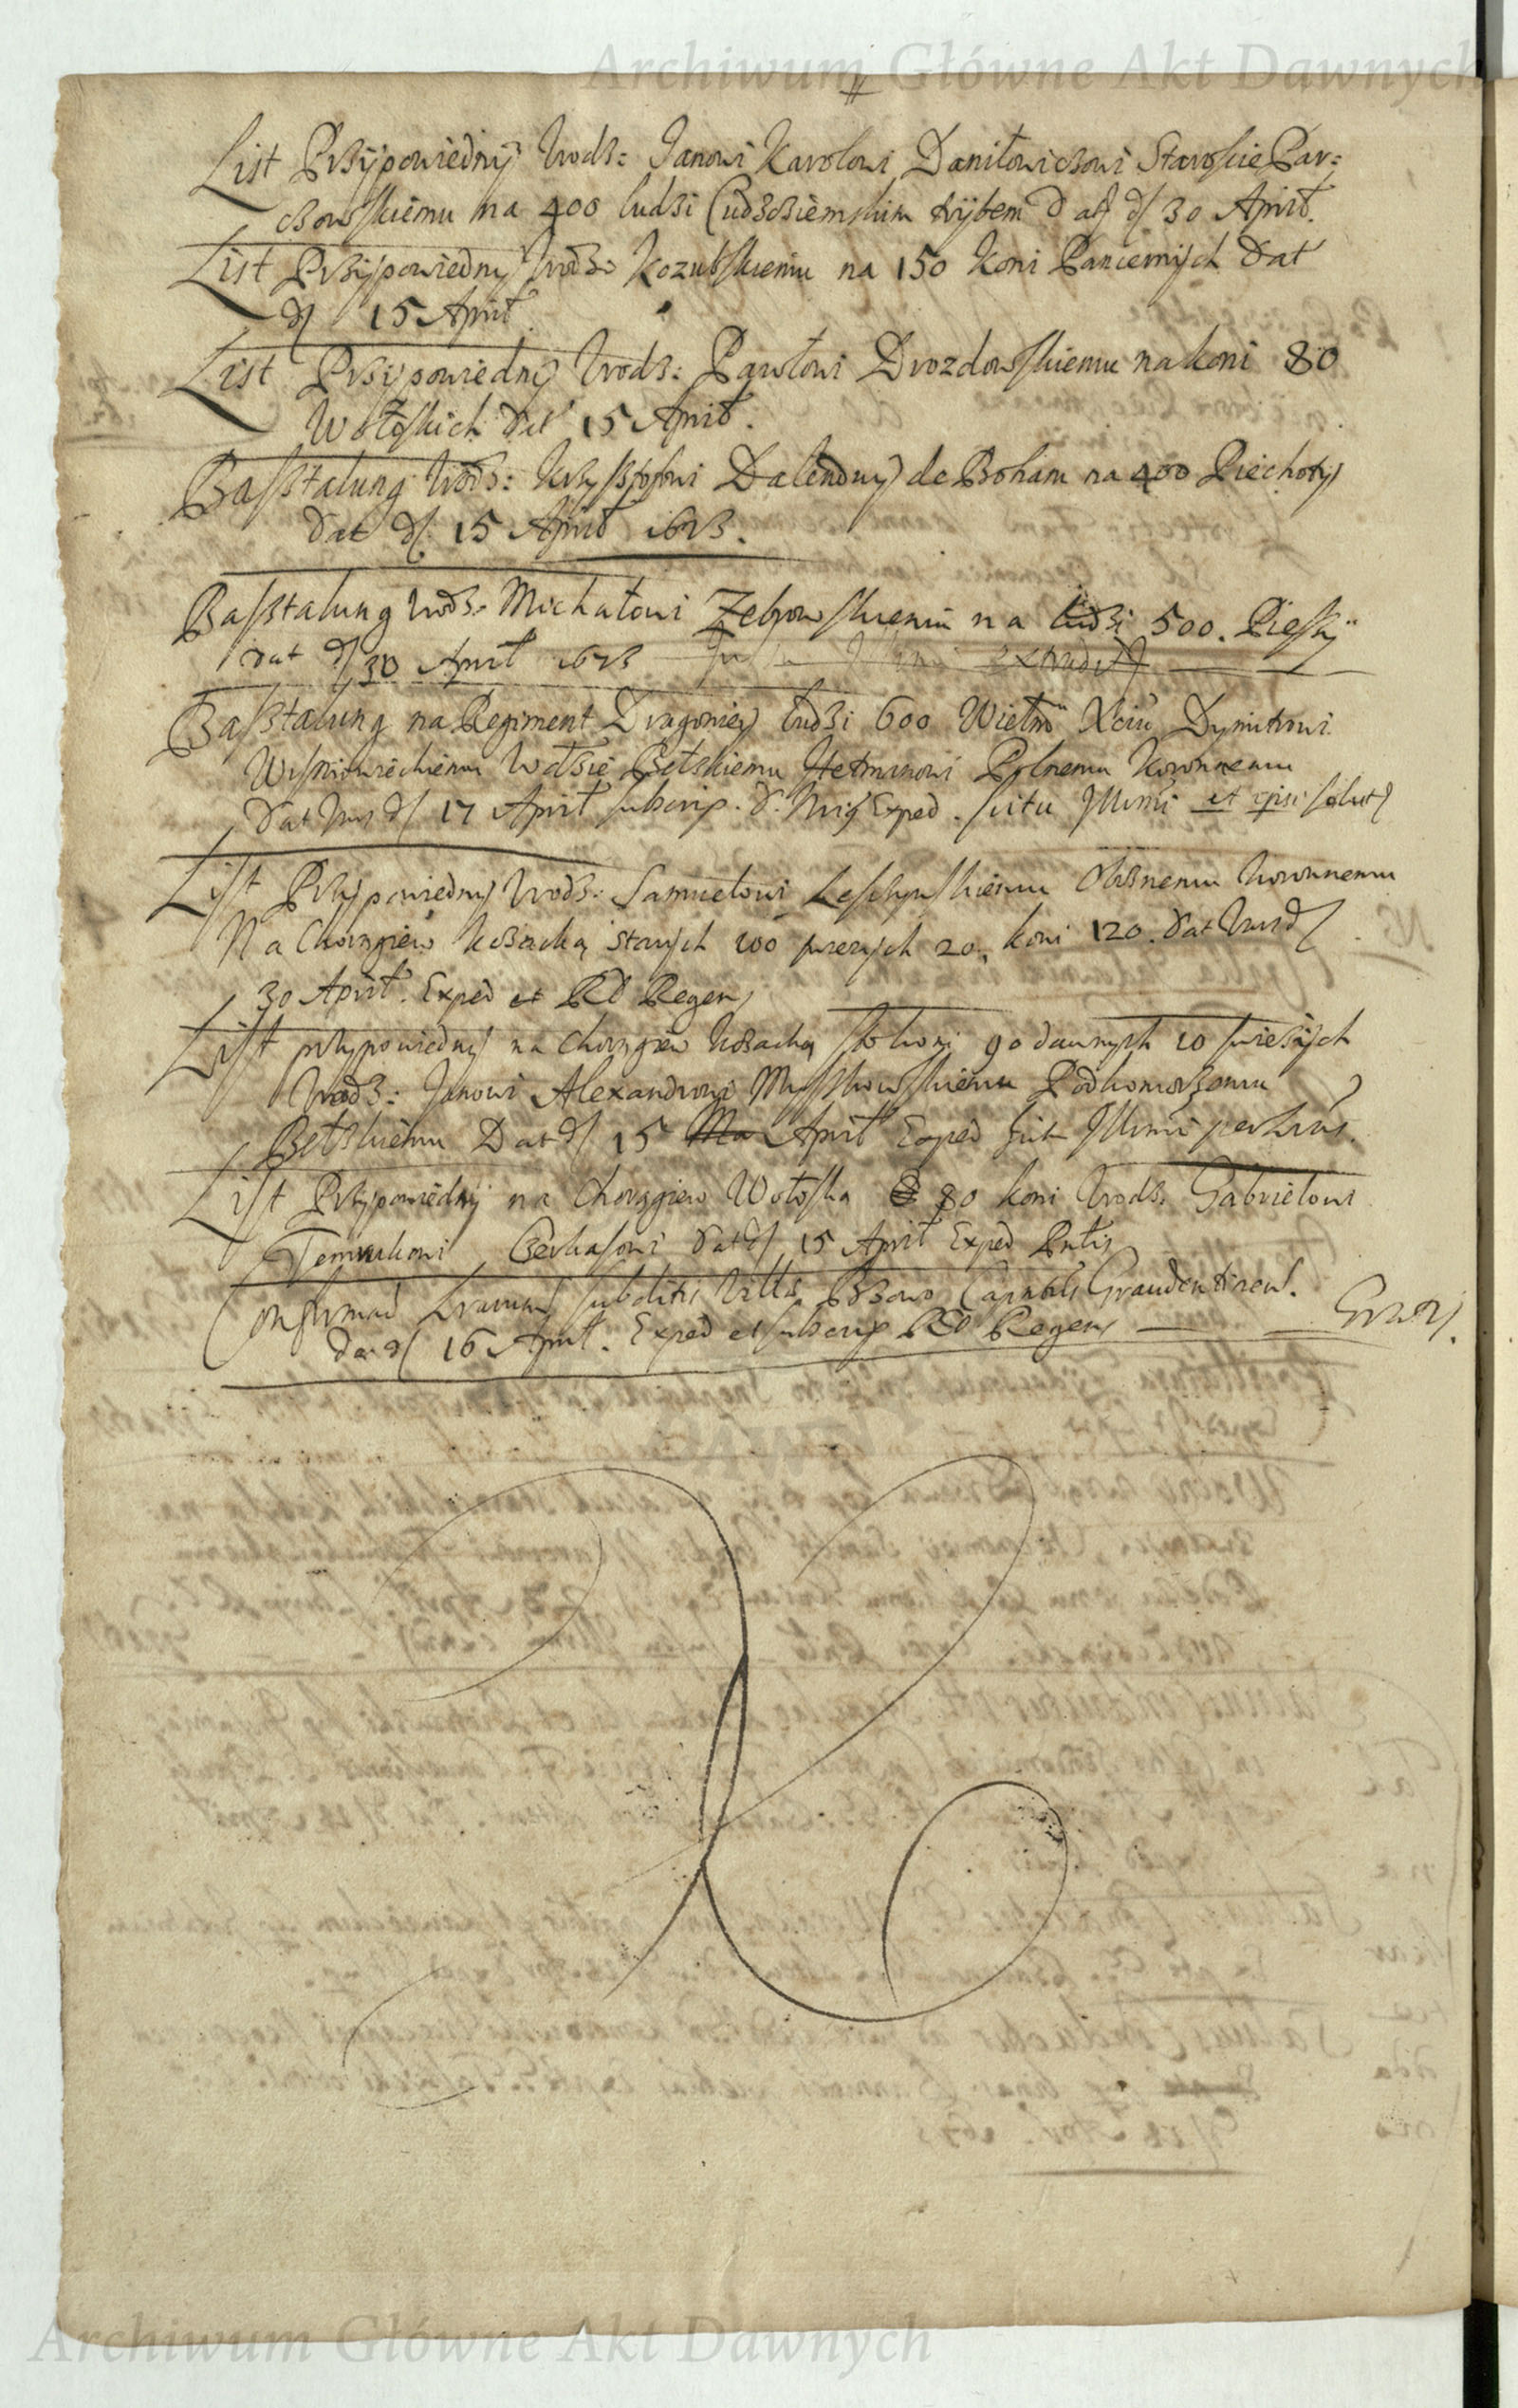 Archiwum Główne Akt Dawnych
List Przÿpowiednÿ Urodz: Janowi Karolowi Daniłowiczowi Staroście Par=
czowskiemu na 400 ludzi Cudzoziemskim trÿbem Dat d 30 April.
List Przÿpowiedny Urodz: Kozubskiemu na 150 koni Pancernych Dat
d 15 April
List Przypowiedny Urodz: Pawłowi Drozdowskiemu na koni 80
Wołoskich Dat 15 April.
Basstalung Urodz: Krzysstofowi Dalenduy de Boham na 400 Piechoty
Dat d. 15 April 1673.
Basstalung Urodz: Michałowi Zebrowskiemu na ludzi 500. Pieszÿ
Dat d 30 April 1673 extradit
Basstalung na Regiment Dragoniey ludzi 600 Wielmo Xciu Dymitrowi
Wiszniowieckiemu Wdzie Bełskiemu Hetmanowi Polnemu Koronnemu
Dat d 17 April subscrip. Exped. Illmi et
List Przypowiedny Urodz: Samuelowi Leszczynskiemu Oboznemu Koronnemu
Na Chorągiew Kozacką starych 100 swiezych 20. koni 120. Dat
30 April. Exped et RD Regens
List przypowiedny na Chorągiew Kozacką sto koni 90 dawnych 10 swiezych
Urodz: Janowi Alexandrowi Myszkowskiemu Podkomorzemu
Bełskiemu Dat d 15 Ma April Exped Illmi
List Przypowiedny na Chorągiew Wołoską 80 koni Urodz. Gabrielowi
Dat d 15 April Exped
Confirmao subditis Villa Capnatus Graudentinens.
Dat d 16 April. Exped et subscrip RD Regens
Archiwum Główne Akt Dawnych